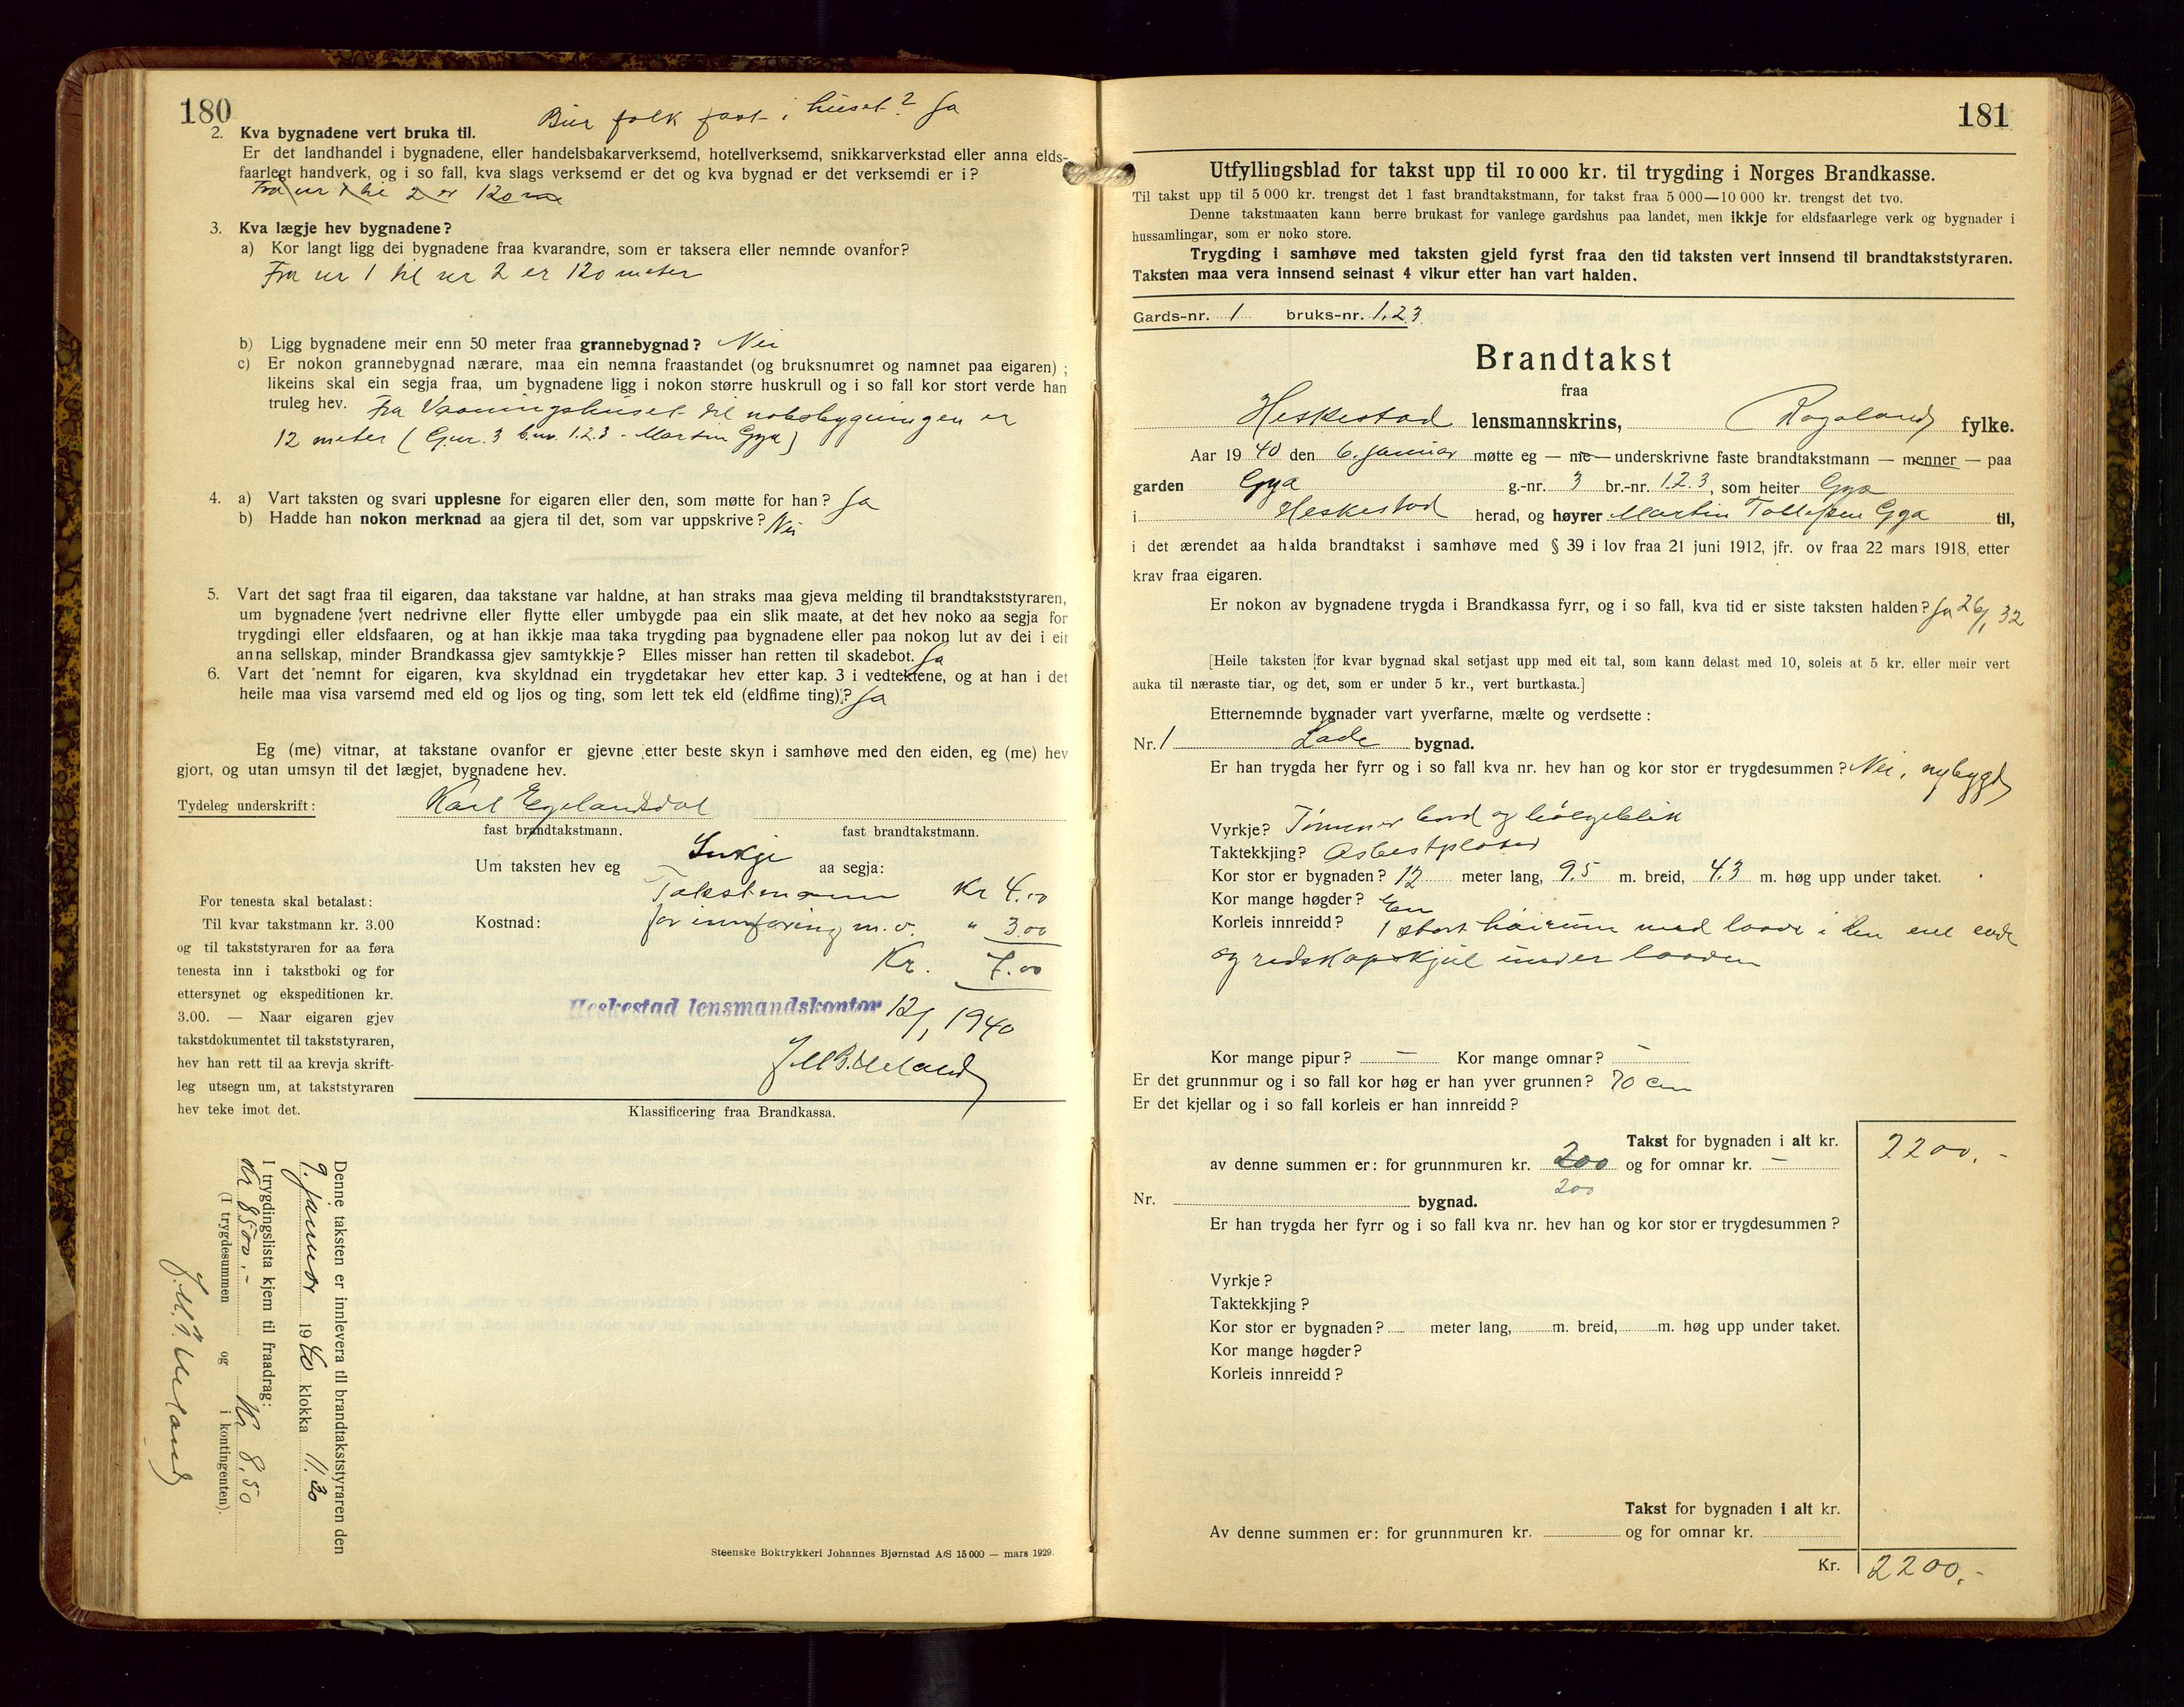 180
Bur folk fast i huset? Ja
2. Kva bygnadene vert bruka til.
Er det landhandel i bygnadene, eller handelsbakarverksemd, hotellverksemd, snikkarverkstad eller anna elds-
faarlegt handverk, og i so fall, kva slags verksemd er det og kva bygnad er det verksemdi er i?
Fra nr 1 til 2 er 120 m
3. Kva lægje hev bygnadene?
a) Kor langt ligg dei bygnadene fraa kvarandre, som er taksera eller nemnde ovanfor?
Fra nr 1 til nr 2 er 120 meter
b) Ligg bygnadene meir enn 50 meter fraa grannebygnad? Nei
c) Er nokon grannebygnad nærare, maa ein nemna fraastandet (og bruksnumret og namnet paa eigaren);
likeins skal ein segja fraa, um bygnadene ligg i nokon større huskrull og i so fall kor stort verde han
truleg hev. Fra Vaaningshuset til nabobygningen er
12 meter (G.nr. 3 b.nr. 1.2.3 - Martin Gya)
4. a) Vart taksten og svari upplesne for eigaren eller den, som møtte for han? Ja
b) Hadde han nokon merknad aa gjera til det, som var uppskrive? Nei
5. Vart det sagt fraa til eigaren, daa takstane var haldne, at han straks maa gjeva melding til brandtakststyraren,
um bygnadene vert nedrivne eller flytte eller umbygde paa ein slik maate, at det hev noko aa segja for
trygdingi eller eldsfaaren, og at han ikkje maa taka trygding paa bygnadene eller paa nokon lut av dei i eit
anna sellskap, minder Brandkassa gjev samtykkje? Elles misser han retten til skadebot. Ja
6. Vart det nemnt for eigaren, kva skyldnad ein trygdetakar hev etter kap. 3 i vedtektene, og at han i det
heile maa visa varsemd med eld og ljos og ting, som lett tek eld (eldfime ting)? Ja
Eg (me) vitnar, at takstane ovanfor er gjevne etter beste skyn i samhøve med den eiden, eg (me) hev
gjort, og utan umsyn til det lægjet, bygnadene hev.
Tydeleg underskrift: Karl Egelandsdal
fast brandtakstmann. fast brandtakstmann.
Um taksten hev eg Inkje aa segja:
Takstmann Kr 4.00
Kostnad: for innføring m.v. " 3.00
Kr. 7.00
For tenesta skal betalast:
Til kvar takstmann kr. 3.00
og til takststyraren for aa føra
tenesta inn i takstboki og for
ettersynet og ekspeditionen kr.
3.00. — Naar eigaren gjev
takstdokumentet til takststyraren,
hev han rett til aa krevja skrift-
leg utsegn um, at takststyraren
hev teke imot det.
Heskestad lensmandskontor 12/1 1940
Klassificering fraa Brandkassa.
Denne taksten er innlevera til brandtakststyraren den
9. januar 1940 klokka 11.30
I trygdingslista kjem til fraadrag:
Kr 8500.- Kr 8,50
(I trygdesummen og i kontingenten).
Steenske Boktrykkeri Johannes Bjørnstad A/S 15000 — mars 1929.
181
Utfyllingsblad for takst upp til 10 000 kr. til trygding i Norges Brandkasse.
Til takst upp til 5 000 kr. trengst det 1 fast brandtakstmann, for takst fraa 5 000—10 000 kr. trengst det tvo.
Denne takstmaaten kann berre brukast for vanlege gardshus paa landet, men ikkje for eldsfaarlege verk og bygnader i
hussamlingar, som er noko store.
Trygding i samhøve med taksten gjeld fyrst fraa den tid taksten vert innsend til brandtakststyraren.
Taksten maa vera innsend seinast 4 vikur etter han vart halden.
Gards-nr. 1 bruks-nr. 1.2.3
Brandtakst
fraa
Heskestad lensmannskrins, Rogaland fylke.
Aar 1940 den 6. januar møtte eg — me — underskrivne faste brandtakstmann — menner — paa
garden Gya g.-nr. 3 br.-nr. 1.2.3, som heiter Gya
i Heskestad herad, og høyrer Martin Tollefsen Gya til,
i det ærendet aa halda brandtakst i samhøve med § 39 i lov fraa 21 juni 1912, jfr. ov fraa 22 mars 1918, etter
krav fraa eigaren.
Er nokon av bygnadene trygda i Brandkassa fyrr, og i so fall, kva tid er siste taksten halden? Ja 26/1 32
[Heile taksten for kvar bygnad skal setjast upp med eit tal, som kann delast med 10, soleis at 5 kr. eller meir vert
auka til næraste tiar, og det, som er under 5 kr., vert burtkasta.]
Etternemnde bygnader vart yverfarne, mælte og verdsette:
Nr. 1 Lade bygnad.
Er han trygda her fyrr og i so fall kva nr. hev han og kor stor er trygdesummen? Nei, nybygd
Vyrkje? Tømmer bord og bølgeblik
Taktekkjing? Asbestplater
Kor stor er bygnaden? 12 meter lang, 9.5 m. breid, 4.3 m. høg upp under taket.
Kor mange høgder? En
Korleis innreidd? 1 stort høirum med laave i den ene ende
og redskapskjul under laaven
Kor mange pipur? — Kor mange omnar? —
Er det grunnmur og i so fall kor høg er han yver grunnen? 70 cm
Er det kjellar og i so fall korleis er han innreidd?
Takst for bygnaden i alt kr. 2200.-
av denne summen er: for grunnmuren kr. 200 og for omnar kr. —
200
Nr. bygnad.
Er han trygda her fyrr og i so fall kva nr. hev han og kor stor er trygdesummen?
Vyrkje?
Taktekkjing?
Kor stor er bygnaden? meter lang, m. breid, m. høg upp under taket.
Kor mange høgder?
Korleis innreidd?
Takst for bygnaden i alt kr.
Av denne summen er: for grunnmuren kr. og for omnar kr.
Kr. 2200.-